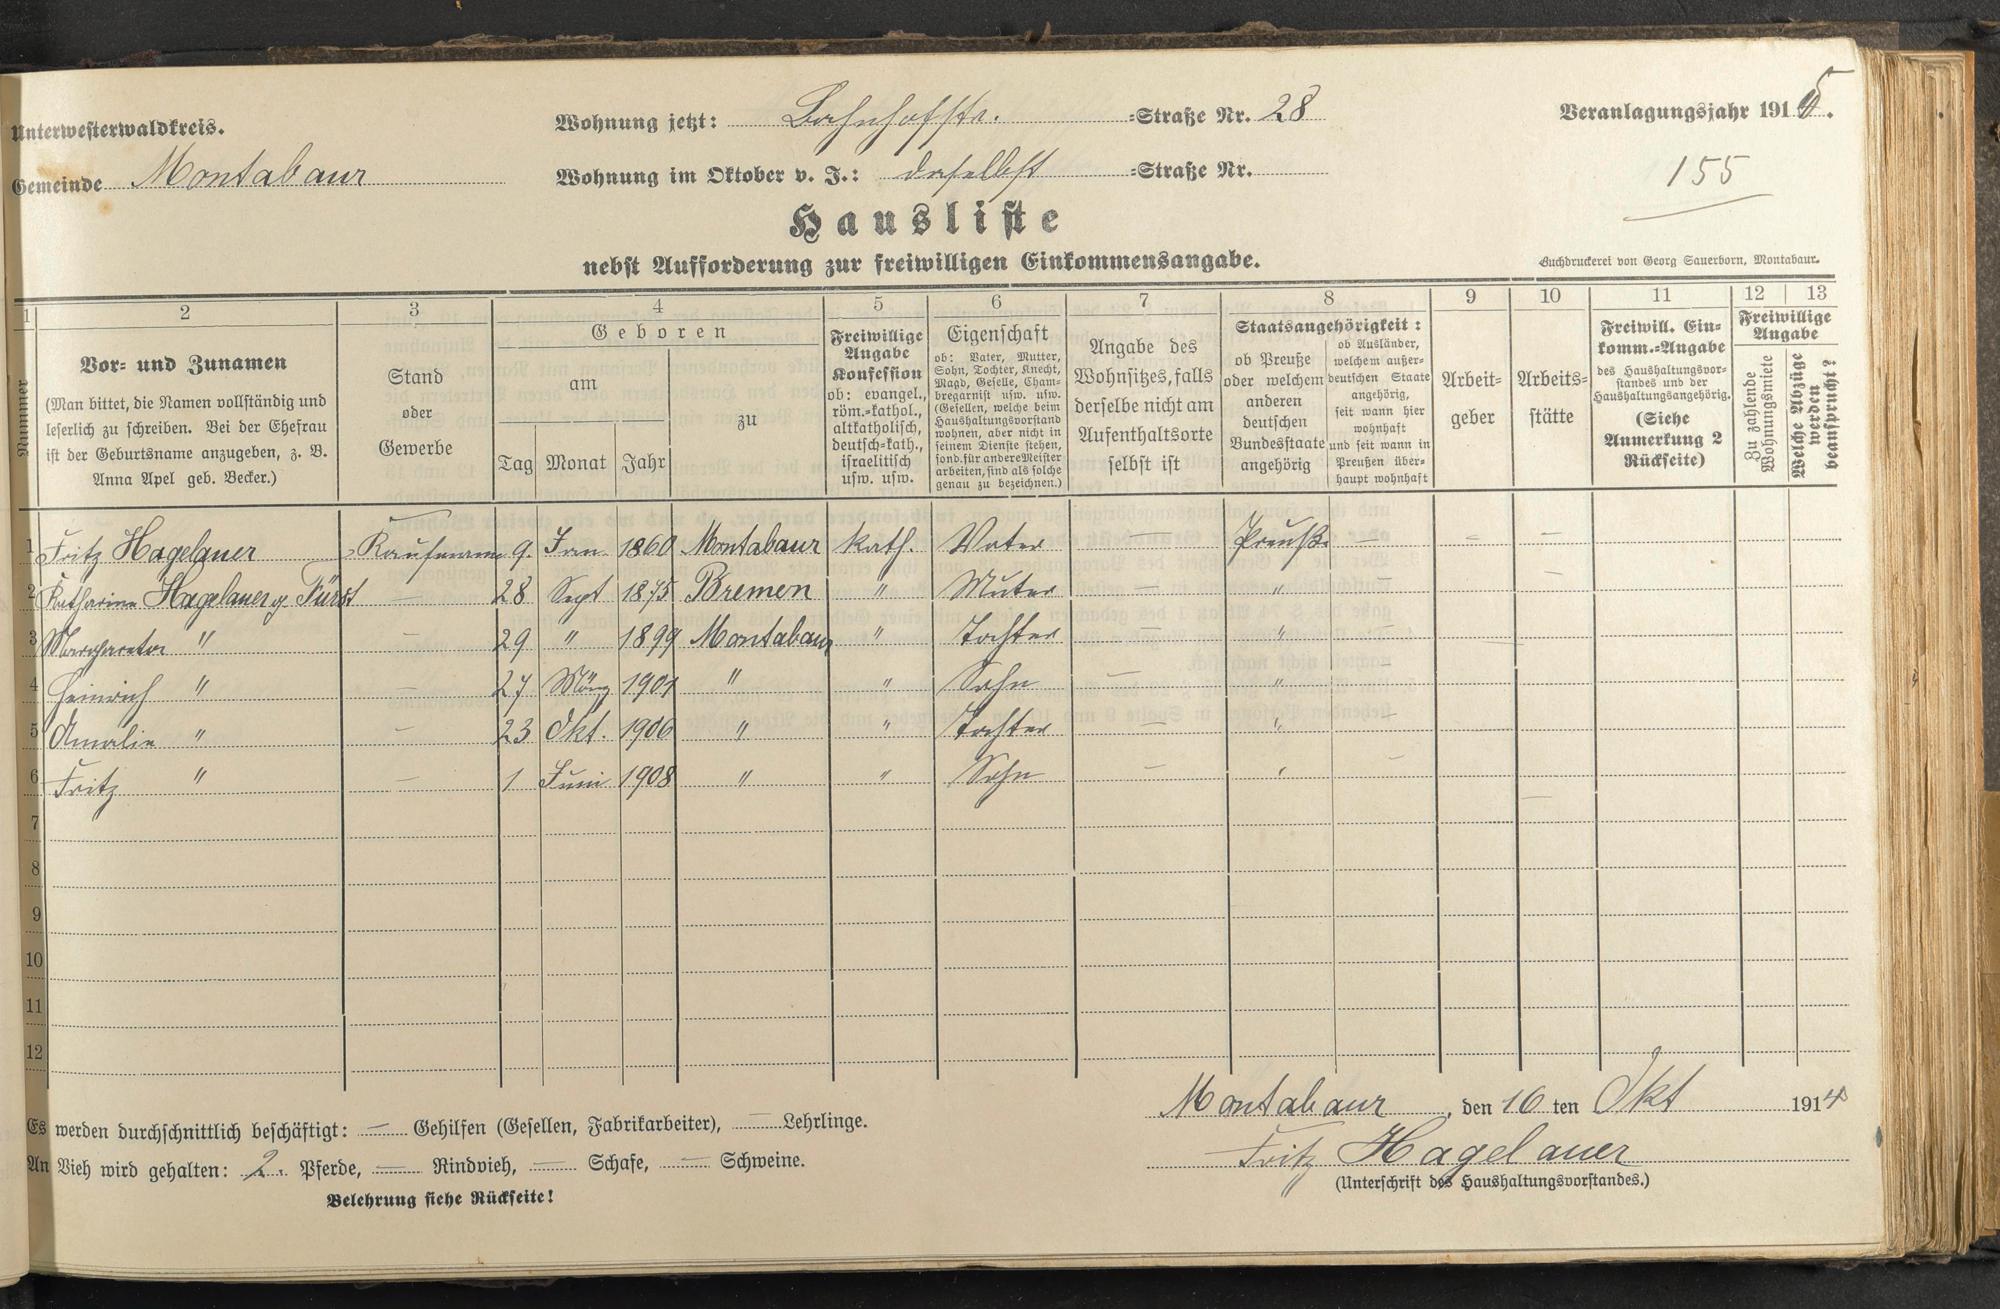 Unterwesterwaldkreis.
Wohnung jetzt: Bahnhofstr. =Straße Nr. 28
Veranlagungsjahr 1915.
Gemeinde Montabaur
Wohnung im Oktober v. J.: daselbst =Straße Nr.
155
Hausliste
nebst Aufforderung zur freiwilligen Einkommensangabe.
Buchdruckerei von Georg Sauerborn, Montabaur.
1 2 3 4 5 6 7 8 9 10 11 12 13
Nummer
Vor- und Zunamen
(Man bittet, die Namen vollständig und
leserlich zu schreiben. Bei der Ehefrau
ist der Geburtsname anzugeben, z. B.
Anna Apel geb. Becker.)
Stand
oder
Gewerbe
Geboren
am
Tag Monat Jahr
zu
Freiwillige
Angabe
Konfession
ob: evangel.,
röm.=kathol.,
altkatholisch,
deutsch=kath.,
israelitisch
usw. usw.
Eigenschaft
ob: Vater, Mutter,
Sohn, Tochter, Knecht,
Magd, Geselle, Cham-
bregarnist usw. usw.
(Gesellen, welche beim
Haushaltungsvorstand
wohnen, aber nicht in
seinem Dienste stehen,
sond. für andere Meister
arbeiten, sind als solche
genau zu bezeichnen.)
Angabe des
Wohnsitzes, falls
derselbe nicht am
Aufenthaltsorte
selbst ist
Staatsangehörigkeit:
ob Preuße
oder welchem
anderen
deutschen
Bundesstaate
angehörig
ob Ausländer,
welchem außer-
deutschen Staate
angehörig,
seit wann hier
wohnhaft
und seit wann in
Preußen über-
haupt wohnhaft
Arbeit-
geber
Arbeits-
stätte
Freiwill. Ein-
komm.=Angabe
des Haushaltungsvor-
standes und der
Haushaltungsangehörig.
(Siehe
Anmerkung 2
Rückseite)
Freiwillige
Angabe
Zu zahlende
Wohnungsmiete
Welche Abzüge
werden
beansprucht?
1 Fritz Hagelauer Kaufmann 9. Jan 1860 Montabaur kath. Vater — Preuße — — —
2 Katharina Hagelauer g. Fürst — 28 Sept 1875 Bremen " Mutter — " — —
3 Margareta " — 29 " 1899 Montabaur " Tochter — " — —
4 Heinrich " — 27 März 1901 " " Sohn — " —
5 Amalie " — 23 Okt. 1906 " " Tochter — " — —
6 Fritz " — 1 Juni 1908 " " Sohn — " — —
7
8
9
10
11
12
Montabaur, den 16 ten Okt 1914
Es werden durchschnittlich beschäftigt: — Gehilfen (Gesellen, Fabrikarbeiter), — Lehrlinge.
Fritz Hagelauer
An Vieh wird gehalten: 2. Pferde, — Rindvieh, — Schafe, — Schweine.
(Unterschrift des Haushaltungsvorstandes.)
Belehrung siehe Rückseite!